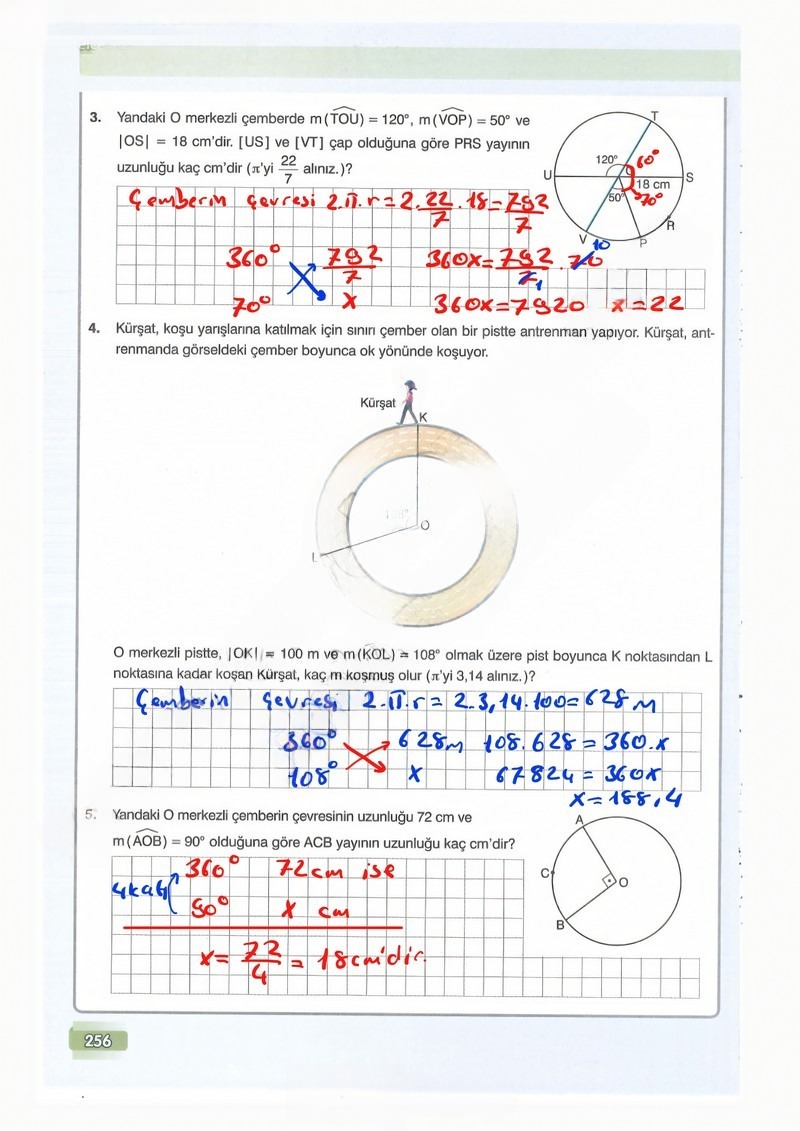 3. Yandaki O merkezli çemberde m(TOU) = 120°, m(VOP) = 50° ve
|OS| = 18 cm'dir. [US] ve [VT] çap olduğuna göre PRS yayının
uzunluğu kaç cm'dir (π'yi 22/7 alınız.)?
T
120°
60°
U
S
18 cm
50°
70°
R
V
P
Çemberin çevresi 2.π.r = 2.22/7.18 = 792/7
360° 792/7 360x = 792/7 . 70 10
1
70° x 360x = 7920 x = 22
4. Kürşat, koşu yarışlarına katılmak için sınırı çember olan bir pistte antrenman yapıyor. Kürşat, ant-
renmanda görseldeki çember boyunca ok yönünde koşuyor.
Kürşat
K
108°
O
L
O merkezli pistte, |OK| = 100 m ve m(KOL) = 108° olmak üzere pist boyunca K noktasından L
noktasına kadar koşan Kürşat, kaç m koşmuş olur (π'yi 3,14 alınız.)?
Çemberin çevresi 2.π.r = 2.3,14.100 = 628 m
360° 628m 108.628 = 360.x
108° x 67824 = 360x
x = 188,4
5. Yandaki O merkezli çemberin çevresinin uzunluğu 72 cm ve
m(AOB) = 90° olduğuna göre ACB yayının uzunluğu kaç cm'dir?
A
C
O
B
360° 72cm ise
4katı
90° x cm
x = 72/4 = 18cm'dir.
256